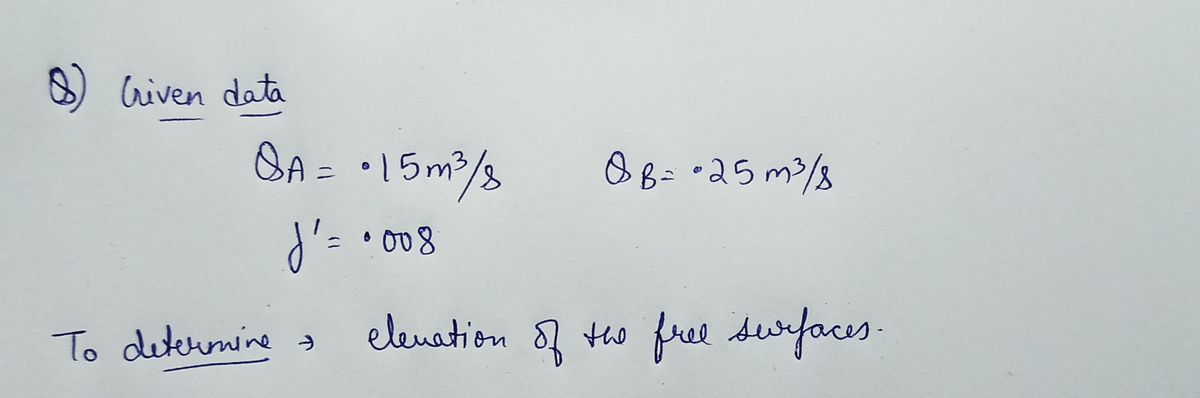 Q) Given data
QA = •15m³/s QB = •25 m³/s
f' = •008
To determine → elevation of the free surfaces.